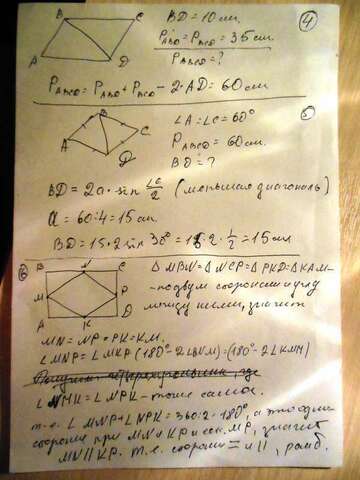 ④
B C
A D
BD = 10 см.
P_ABD = P_BCD = 35 см.
P_ABCD = ?
P_ABCD = P_ABD + P_BCD - 2·AD = 60 см
⑤
B
A C
D
∠A = ∠C = 60°
P_ABCD = 60 см.
BD = ?
BD = 2a · sin ∠C/2 (меньшая диагональ)
a = 60:4 = 15 см.
BD = 15·2 sin 30° = 15·2·1/2 = 15 см
⑥
B N C
M P
A K D
Δ MBN = Δ NCP = Δ PKD = Δ KAM -
по двум сторонам и углу
между ними, значит
MN = NP = PK = KM.
∠MNP = ∠MKP (180° - 2∠BNM) = (180° - 2∠KMH)
∠NMK = ∠NPK - тоже самое.
т.е. ∠MNP + ∠NPK = 360:2 = 180°, а это одно
сторон при MN и KP и сек. MP, значит
MN ∥ KP. Т.е. стороны = и ∥, ромб.